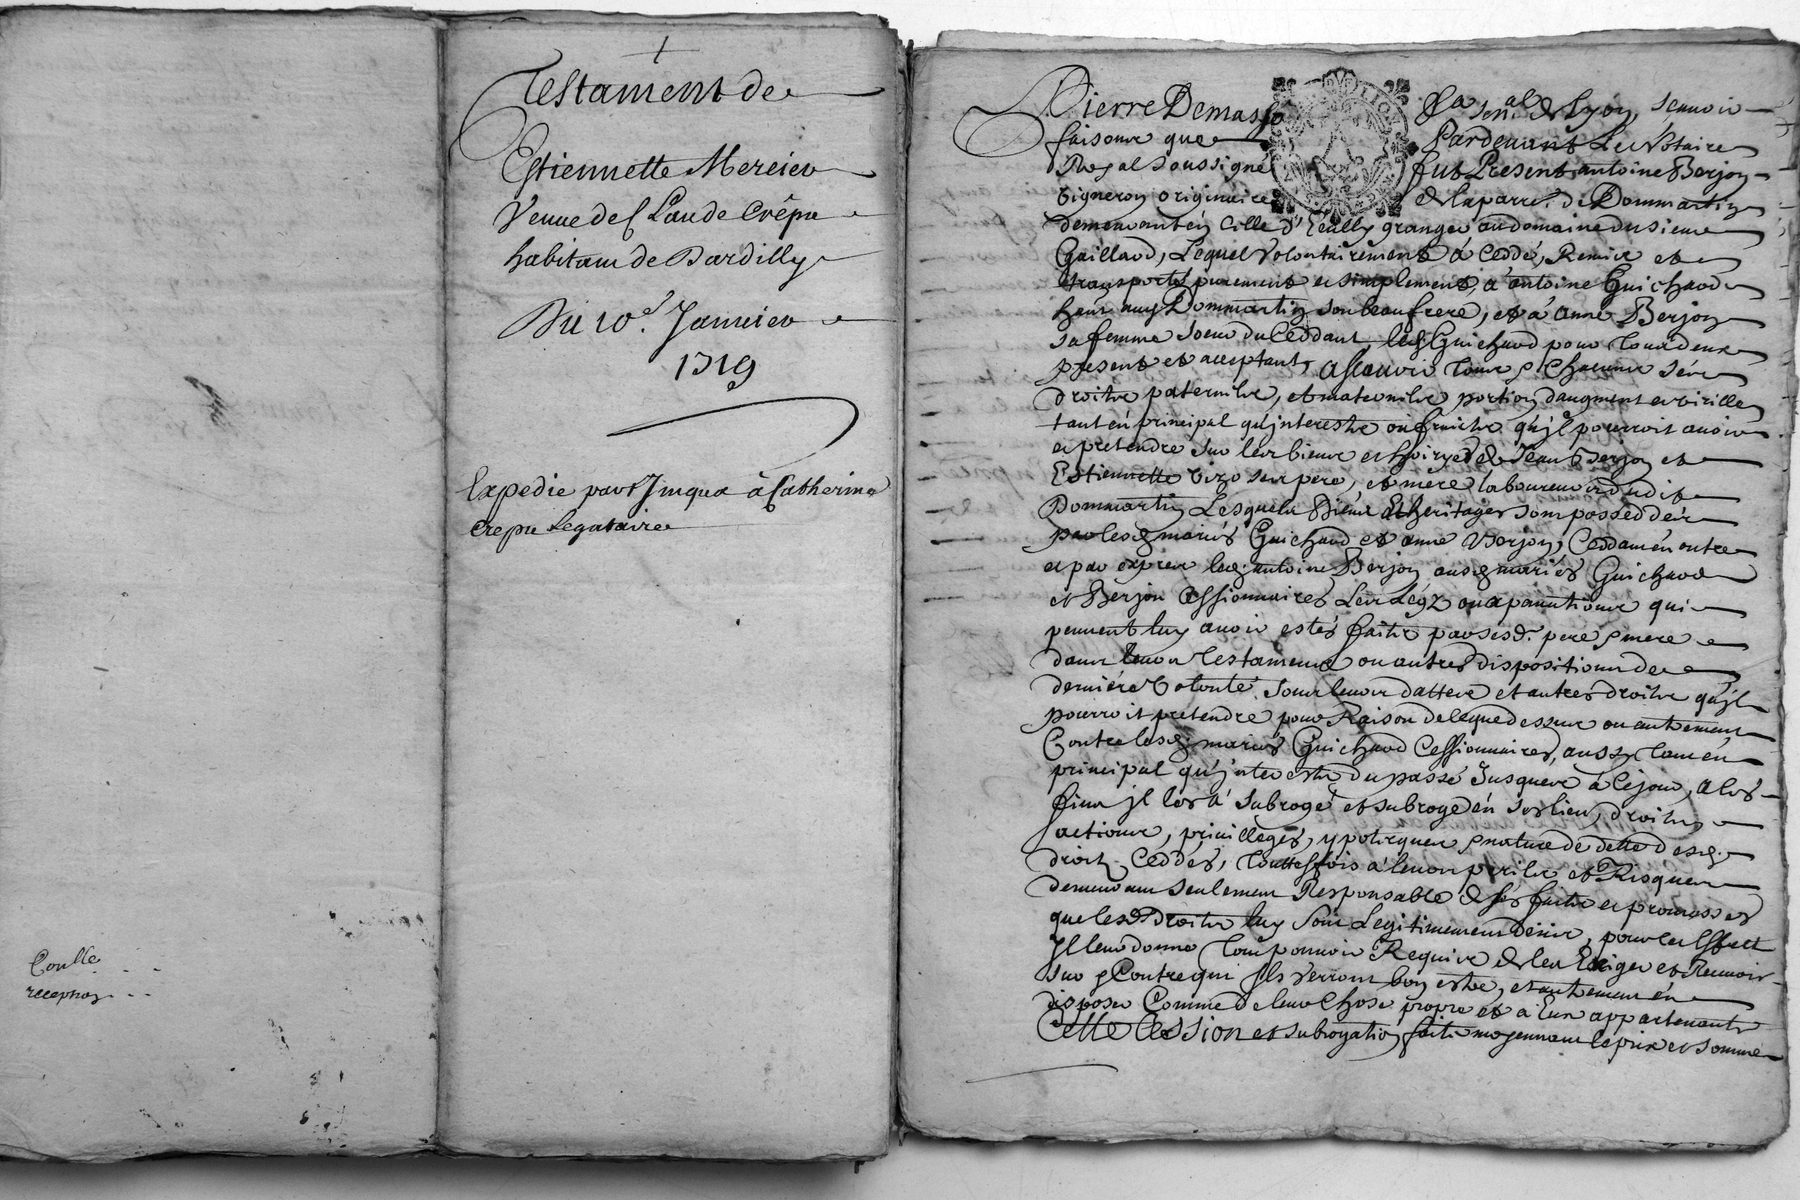 Testament de
Estiennette Mercier
Veuve de Claude Crépu
habitant de Dardilly
Du 10e. Januier
1719
Expedie par Jusqua à Catherine
crepu Legataire
Coulle
reception
Pierre Demasso
Sen.al de Lyon, scauoir
faisons que Pardeuant Le Notaire
Royal soussigné fut Present antoine Berjon
vigneron originaire de la parre. de Dommartin
demeurant en cille d'Ecully granger au domaine du sieur
Gaillard, Lequel volontairement à Ceddé, Remis et
transporté purement et simplement, à antoine Guichard
hant auy Dommartin son beaufrere, et à anne Berjon
sa femme soeur du Ceddant, led Guichard pour tous deux
present et acceptant, ascauoir tous et Chacuns ses
droits paternels, et maternels portion daugment et virille
tant en principal qu'interests ou fruicts qu'jl pourroit auoir
et pretendre sur les biens et hoiryes de Jean Berjon et
Estiennette vizo ses pere, et mere laboureurs dudit
Dommartin Lesquels Biens et heritages sont posseddés
par lesd mariés Guichard et anne Berjon, Ceddant en outre
et par exprex led antoine Berjon ausd mariés Guichard
et Berjon Cessionnaires Les Legz ou apanations qui
peuuent luy auoir estés faits par sesd. pere et mere
dans leurs testaments ou autres dispositions de
derniere volonté sous leurs dattes et autres droits qu'jl
pourroit pretendre pour Raison de leque dessus ou autrement
Contre lesd mariés Guichard Cessionnaires, aussy tant en
principal qu'jnterests du passé Jusques à cejour, a les
fins jl les à subrogé et subroge en ses lieu, droits,
actions, priuilleges, ypotecques et nature de dette desd.
droits Ceddés, touttesfois à leurs perils et Risques
demeurant seulement Responsable de ses faits et promesses
que lesd Droits luy sont Legitimement deus, pour cet Effect
Jl leur donne tout pouuoir Requis de les Exiger et Receuoir
sur et Contre qui jls verront bon estre, et autrement en
disposer Comme de leur Chose propre et à Eux appartenants
Cette Cession et subrogation faite moyennant le prix et somme